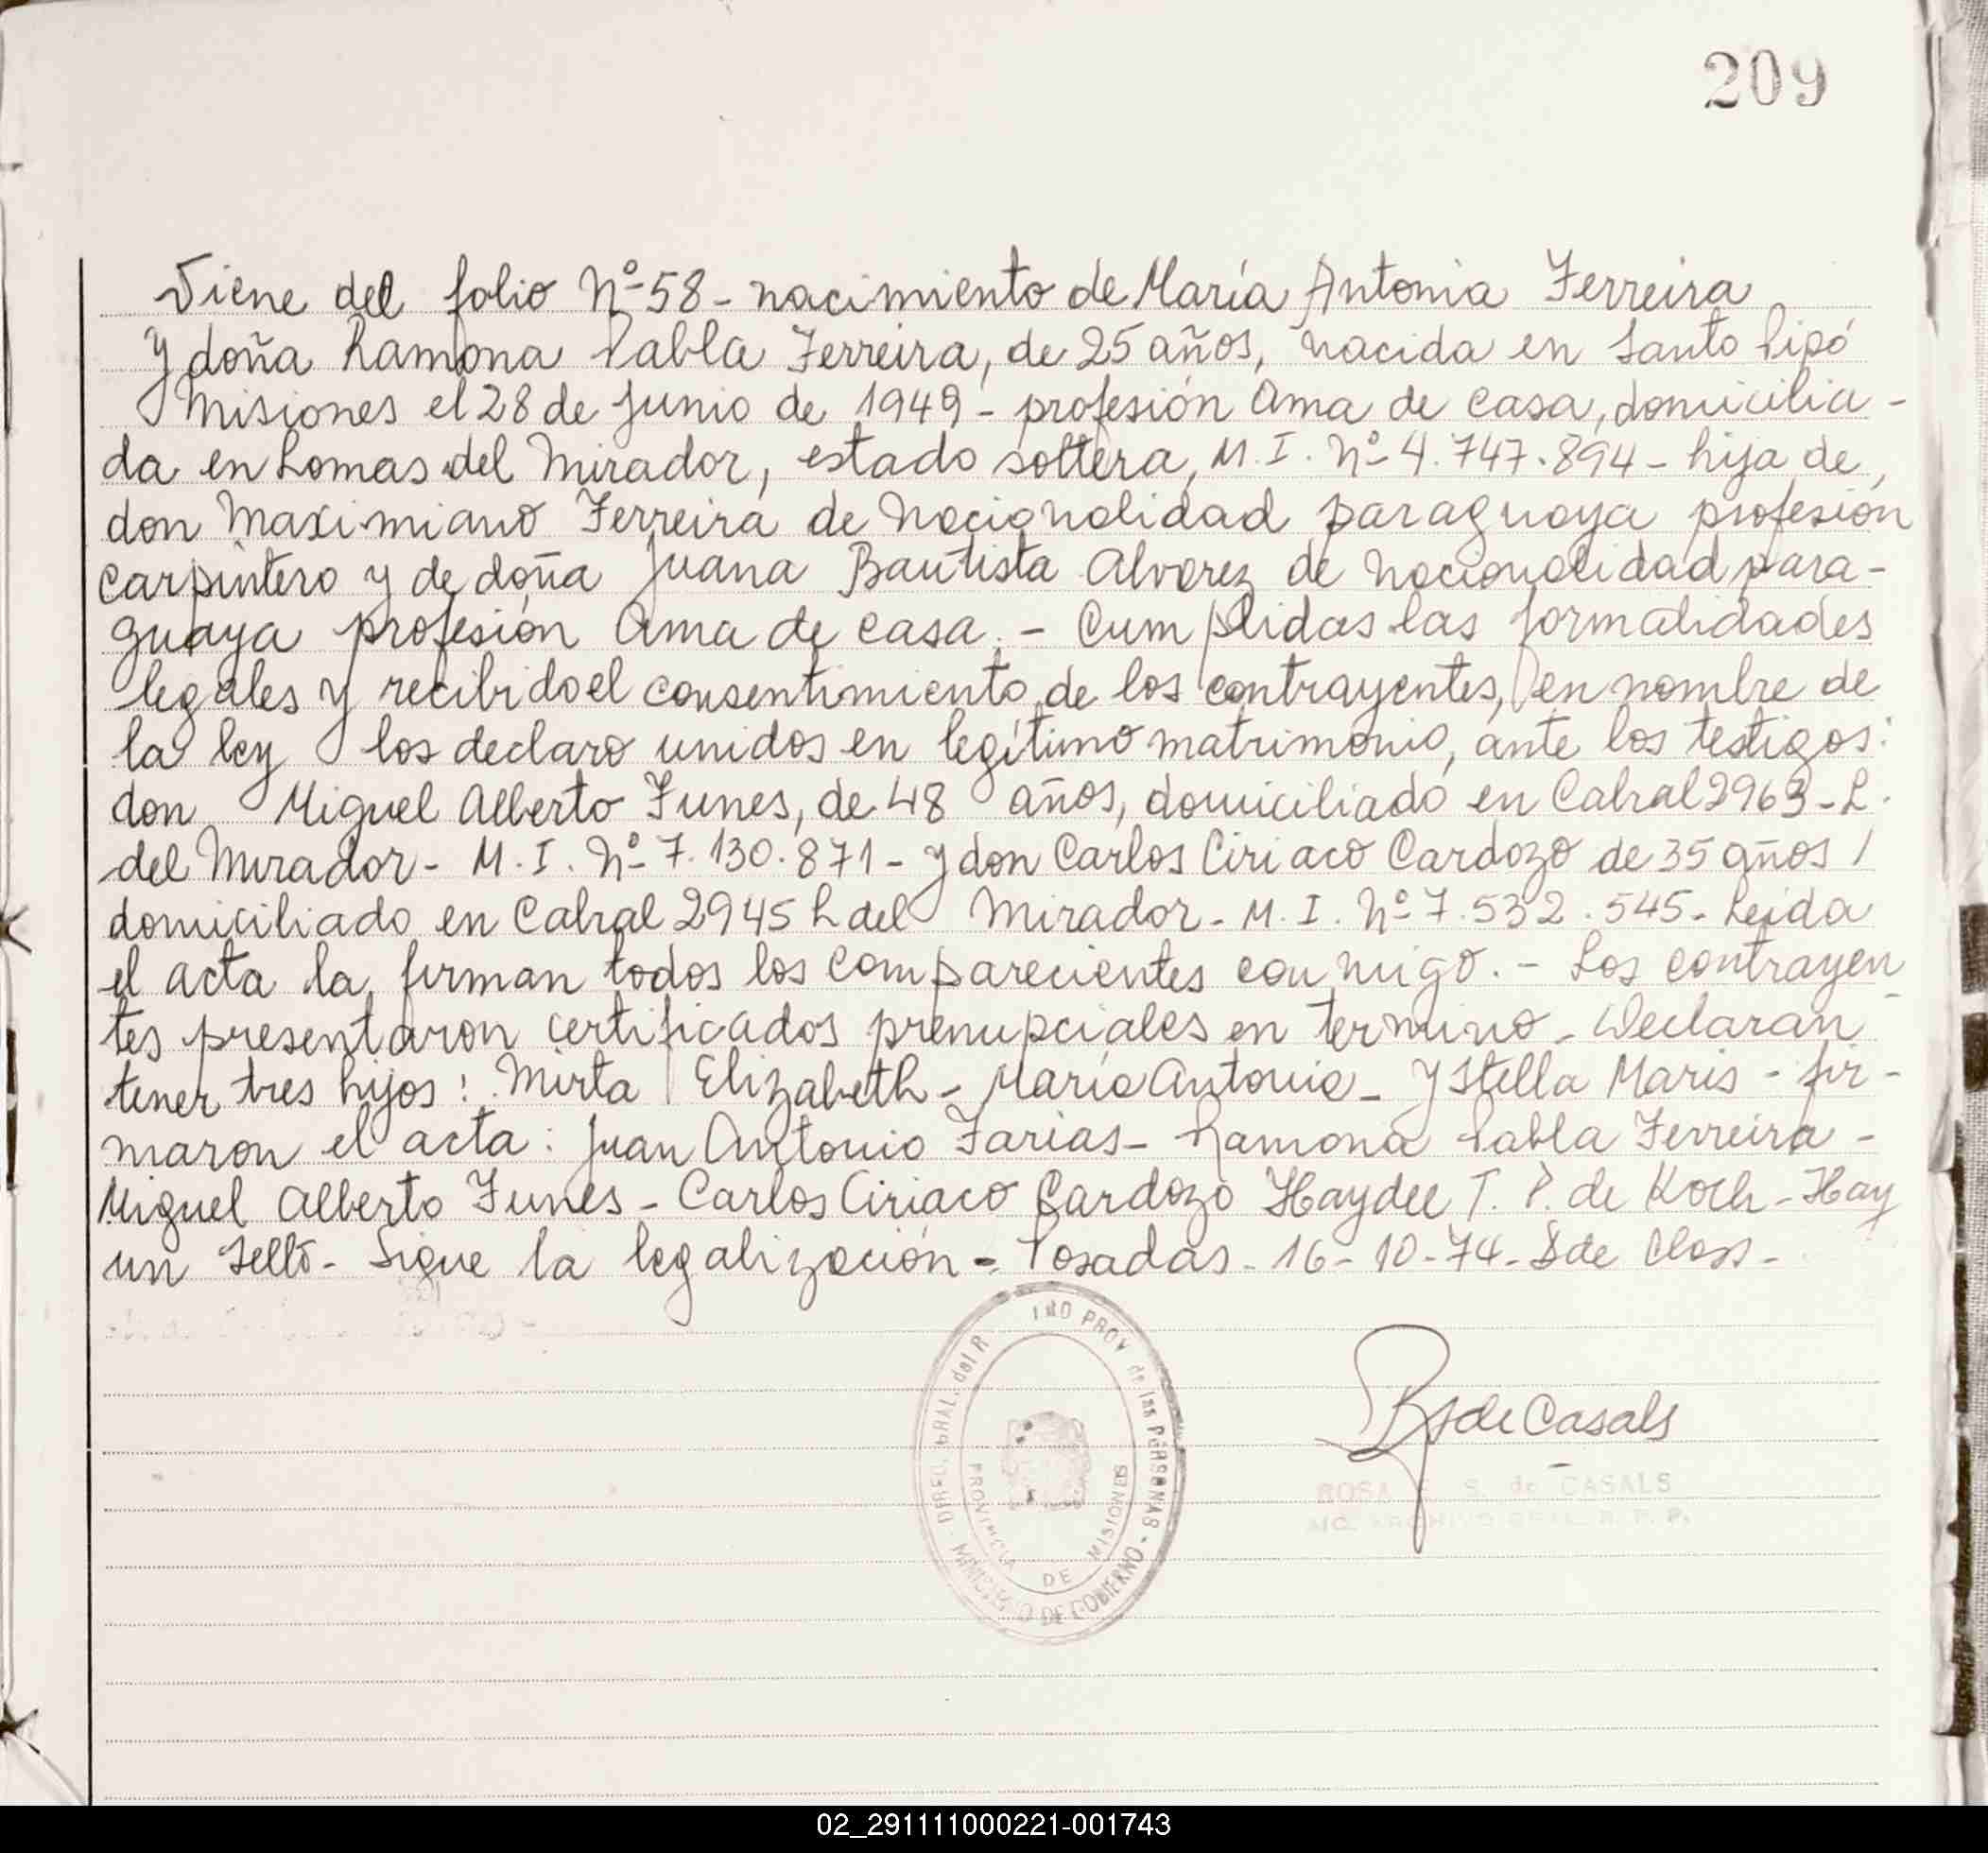 209
Viene del folio Nº 58 - nacimiento de María Antonia Ferreira
y doña Ramona Pabla Ferreira, de 25 años, nacida en Santo Pipó
Misiones el 28 de Junio de 1949 - profesión Ama de casa, domicilia-
da en Lomas del Mirador, estado soltera, M. I. Nº 4.747.894 - hija de
don Maximiano Ferreira de nacionalidad paraguaya profesión
carpintero y de doña Juana Bautista Alvarez de nacionalidad para-
guaya profesión Ama de casa. - Cumplidas las formalidades
legales y recibido el consentimiento de los contrayentes, en nombre de
la ley los declaro unidos en legítimo matrimonio, ante los testigos:
don Miguel Alberto Funes, de 48 años, domiciliado en Cabral 2963 - L.
del Mirador - M. I. Nº 7.130.871 - y don Carlos Ciriaco Cardozo de 35 años /
domiciliado en Cabral 2945 L del Mirador - M. I. Nº 7.532.545. Leída
el acta la firman todos los comparecientes conmigo. - Los contrayen-
tes presentaron certificados prenupciales en termino - Declaran
tener tres hijos: Mirta Elizabeth - María Antonia - y Stella Maris - fir-
maron el acta: Juan Antonio Farias - Ramona Pabla Ferreira -
Miguel Alberto Funes - Carlos Ciriaco Cardozo Haydee T. P. de Koch - Hay
un sello - Sigue la legalización - Posadas - 16 - 10 - 74 - S de Closs -
DIREC. GRAL. del R PROV de las PERSONAS - MINISTERIO DE GOBIERNO
PROVINCIA DE MISIONES
RS de Casals
ROSA E. S. de CASALS
02_291111000221-001743